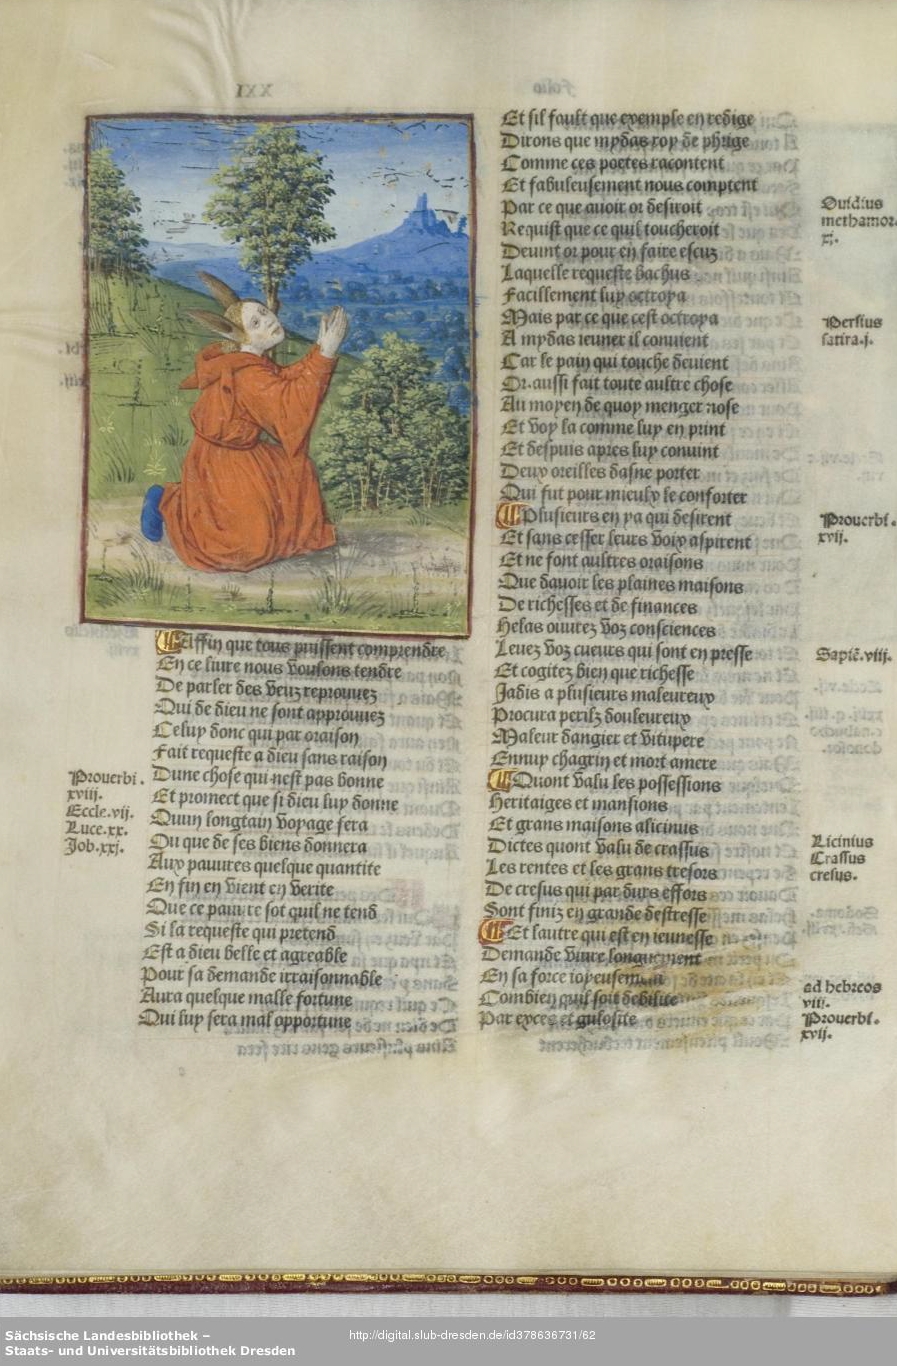 Affin que tous puissent comprendre
En ce liure nous voulons tendre
De parler des veuz reprouuez
Qui de dieu ne sont approuuez
Celuy donc qui par oraison
Fait requeste a dieu sans raison
Dune chose qui nest pas bonne
Et promect que si dieu luy donne
Quun longtain voyage fera
Ou que de ses biens donnera
Aux pauures quelque quantite
En fin en vient en verite
Que ce pauure sot quil ne tend
Si la requeste qui pretend
Est a dieu belle et agreable
Pour sa demande irraisonnable
Aura quelque malle fortune
Qui luy sera mal opportune
Prouerbi.
xviij.
Eccle.vij.
Luce.xx.
Job.xxj.
Et sil fault que exemple en redige
Dirons que mydas roy de phrige
Comme ces poetes racontent
Et fabuleusement nous comptent
Par ce que auoir or desiroit
Requist que ce quil toucheroit
Deuint or pour en faire escuz
Laquelle requeste bachus
Facillement luy octroya
Mais par ce que cest octroya
A mydas ieuner il conuient
Car le pain qui touche deuient
Or.aussi fait toute aultre chose
Au moyen de quoy menger nose
Et voy la comme luy en print
Et despuis apres luy conuint
Deux oreilles dasne porter
Qui fut pour mieulx le conforter
Plusieurs en ya qui desirent
Et sans cesser leurs voix aspirent
Et ne font aultres oraisons
Que dauoir les plaines maisons
De richesses et de finances
Helas ouurez voz consciences
Leuez voz cueurs qui sont en presse
Et cogitez bien que richesse
Jadis a plusieurs maleureux
Procura perilz douleureux
Maleur dangier et vitupere
Ennuy chagrin et mort amere
Quont valu les possessions
Heritaiges et mansions
Et grans maisons alicinus
Dictes quont valu de crassus
Les rentes et les grans tresors
De cresus qui par durs effors
Sont finiz en grande destresse
Et lautre qui est en ieunesse
Demande viure longuement
En sa force ioyeusement
Combien quil soit debilite
Par exces et gulosite
Ouidius
methamor.
xj.
Persius
satira.j.
Prouerbi.
xvij.
Sapiē.viij.
Licinius
Crassus
cresus.
ad hebreos
vij.
Prouerbi.
xvij.
Sächsische Landesbibliothek –
Staats- und Universitätsbibliothek Dresden
http://digital.slub-dresden.de/id378636731/62